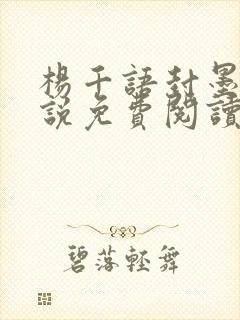 楊千語封墨
說免費閱讀
碧落輕舞